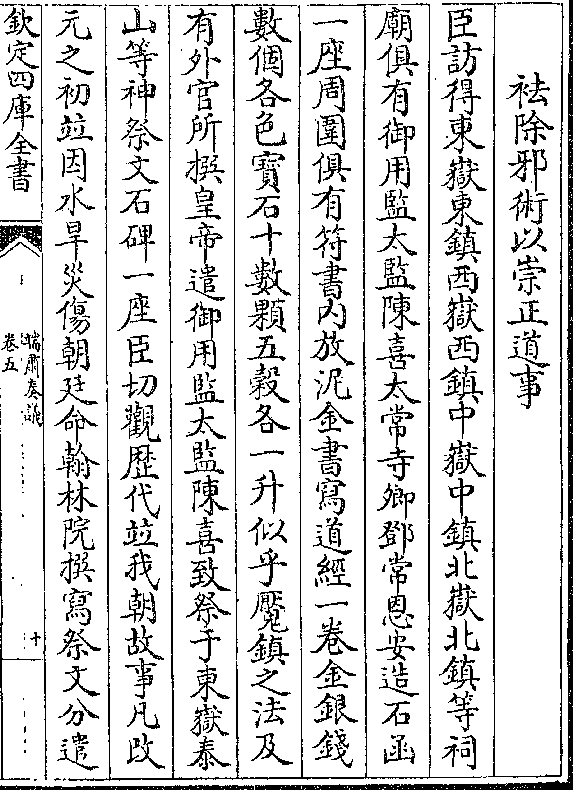 祛除邪術以崇正道事
臣訪得東嶽東鎮西嶽西鎮中嶽中鎮北嶽北鎮等祠
廟俱有御用監太監陳喜太常寺卿鄧常恩安造石函
一座周圍俱有符書内放泥金書寫道經一卷金銀錢
數個各色寳石十數顆五穀各一升似乎魘鎮之法及
有外官所撰皇帝遣御用監太監陳喜致祭于東嶽泰
山等神祭文石碑一座臣切觀歴代竝我朝故事凡改
元之初竝因水旱災傷朝廷命翰林院撰寫祭文分遣
欽定四庫全書
端肅奏議
卷五
十